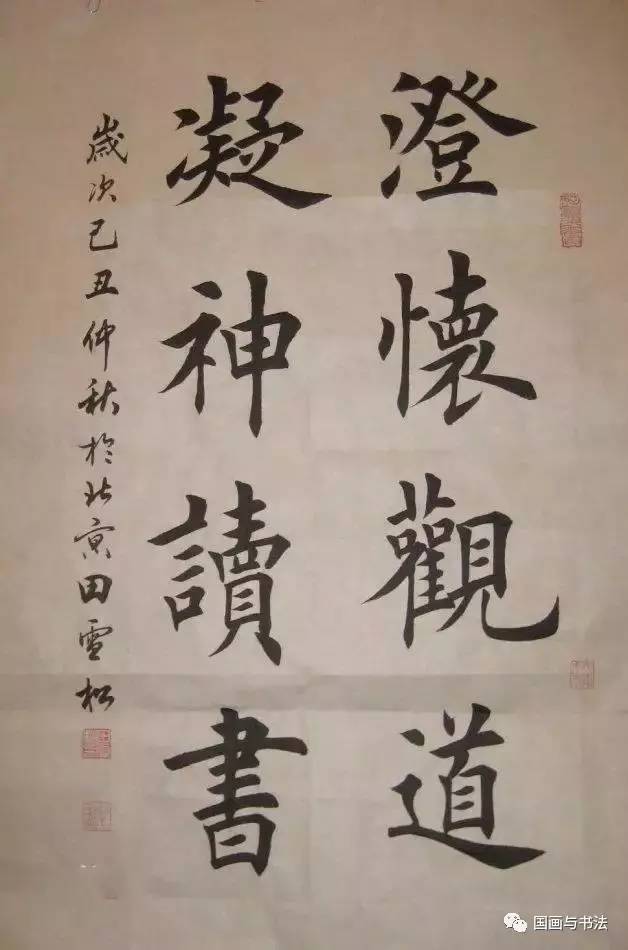 澄懷觀道
凝神讀書
歲次己丑仲秋於北京田雪松
国画与书法